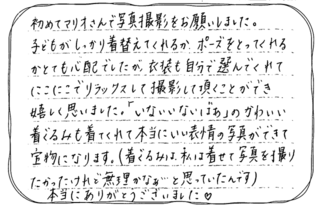 初めてマリオさんで写真撮影をお願いしました。
子どもがしっかり着替えてくれるか、ポーズをとってくれる
かとても心配でしたが、衣装も自分で選んでくれて
にこにこでリラックスして撮影して頂くことができ
嬉しく思いました。「いないいないばぁ」のかわいい
着ぐるみも着てくれて本当にいい表情の写真ができて
宝物になります。(着ぐるみは、私は着せて写真を撮り
たかったけれど無理かなぁと思っていたんです)
本当にありがとうございました♡